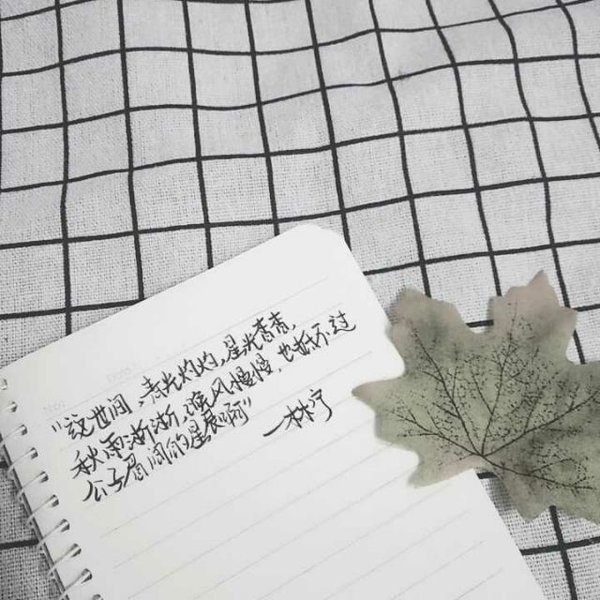 "这世间,春光灼灼,星光杳杳,
秋雨渐渐,凉风慢慢,也抵不过
公子眉间的星辰啊"
—林宁